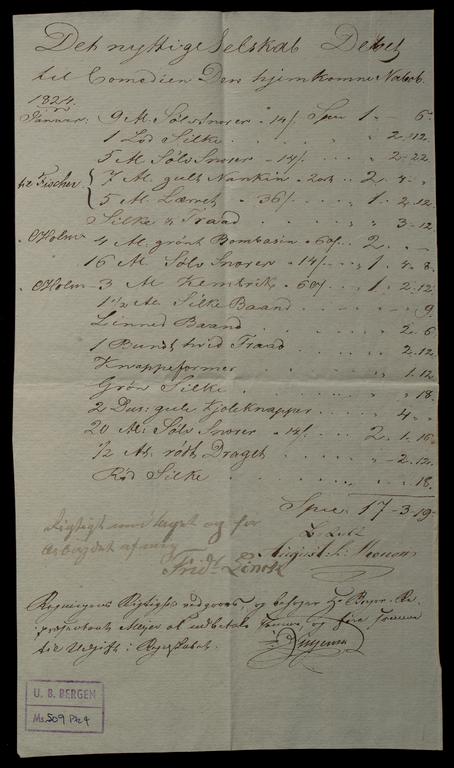 Det nyttige Selskab Debet
til Comedien Den hjemkomne Nabob.
1824.
Januar: 9 Al. Sølv Snorer - 14/ Spec 1 - " 6
1 Lod Silke . . . " 2 - 12
5 Al. Sølv Snorer - 14/ . . " 2 - 22
til Fischer { 7 Al. gult Nankin - 2 . 2 - 4 - "
5 Al. Lærret - 36/ . . 1 - 2 - 12
Silke & Traad . . . " 3 - 12
" OHolm 4 Al. grønt Bombasin - 60/ . . 2 - " -
16 Al. Sølv Snorer - 14/ . . 1 - 4 - 8
" OHolm - 3 Al Kembrik - 60/ . . 1 - 2 - 12
1 1/2 Al. Silke Baand . . . 9
Linned Baand . . . 2 - 6
1 Bundt hvid Traad . . . 2 - 12
Knappeformer . . . 1 - 12
Grøn Silke . . . " 18
2 Dus: gule Kjoleknapper . . . 4 "
20 Al: Sølv Snorer - 14/ . . 2 - 1 - 16
1/2 Al. rødt Draget . . . " 2 - 12
Rød Silke . . . 18
Spec 17 - 3 - 19
Rigtigt modtaget og for
Arbeidet af mig
Frid. Linck
August
Regningens Rigtighed og behager Hr.
Meyer at udbetale og fire
til Udgift i Regnskabet.
U. B. BERGEN
Ms. 509 Pk 4